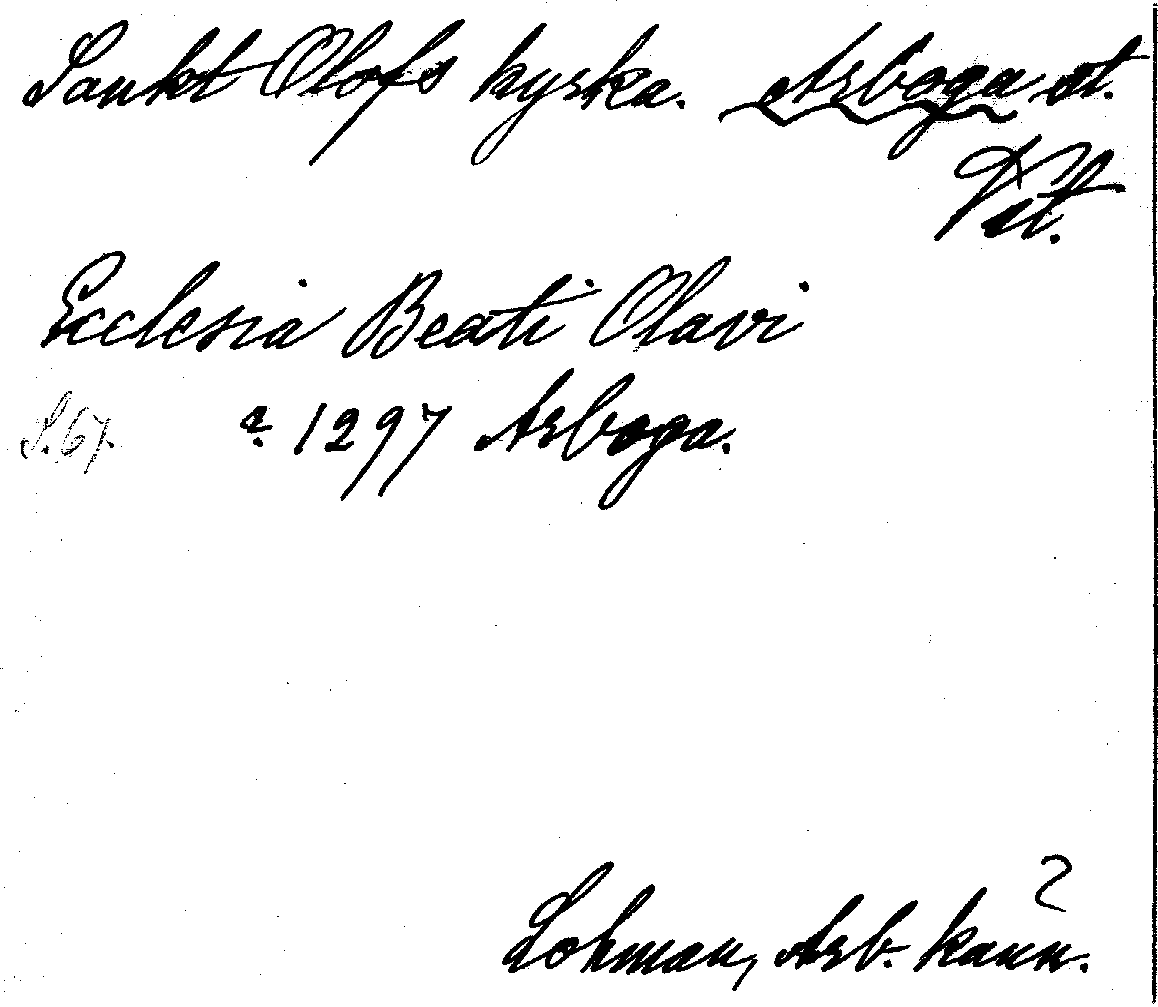 Sankt Olofs kyrka. Arboga st.
Vstl.
Ecclesia Beati Olavi
S. 67. a. 1297 Arboga.
2
Lohman, Arb. känn.